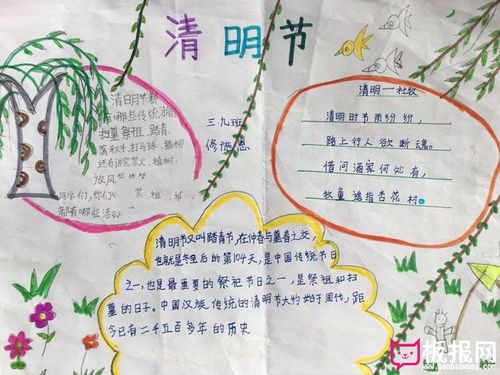 清明节
清明节都
有哪些传统习俗
扫墓祭祖、踏青、
荡秋千、打马球、插柳
还有讲究禁火、植树、
放风
同学们,你们
都有哪些活动
三.九班
清明一杜牧
清明时节雨纷纷,
路上行人欲断魂。
借问酒家何处有,
牧童遥指杏花村。
清明节又叫踏青节,在仲春与暮春之交,
也就是冬至后的第104天,是中国传统节日
之一,也是最重要的祭祀节日之一,是祭祖和扫
墓的日子。中国汉族传统的清明节大约始于周代,距
今已有二千五百多年的历史
板报网
www.banbaowang.com